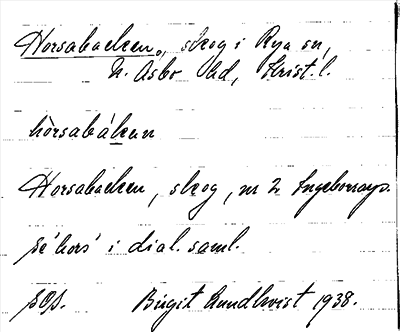 Horsabacken, skog i Rya sn,
N. Åsbo hd, Krist. l.
hòrsabákan
Horsabacken, skog, nr 2 Ingeborrap.
se 'hors' i dial. saml.
Birgit Lundkvist 1938.